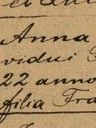 Anna
vidui
22 anno
filia Fra